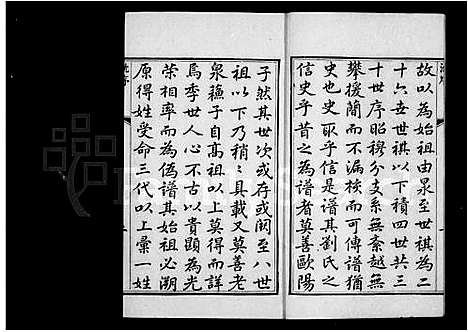 故以為始祖由泉至世祺為二
十六世世祺以下積四世共三
十世序昭穆分支系無紊越無
攀援簡而不漏核而可傳譜猶
史也史取乎信是譜其劉氏之
信史乎昔之為譜者莫善歐陽
子然其世次或存或闕至八世
祖以下乃稍〻具載又莫善老
泉蘓子自高祖以上莫得而詳
焉季世人心不古以貴顯為光
榮相率而為偽譜其始祖必溯
原得姓受命三代以上彙一姓